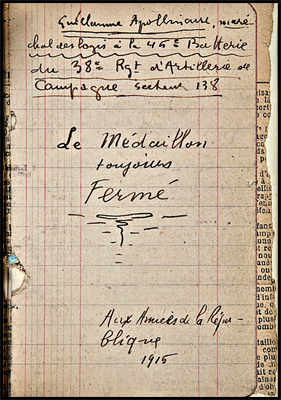 Guillaume Apollinaire, maré-
chal des logis à la 45e Batterie
du 38e Rgt d'Artillerie de
Campagne secteur 138
Le Médaillon
toujours
Fermé
Aux Armées de la Répu-
blique
1915